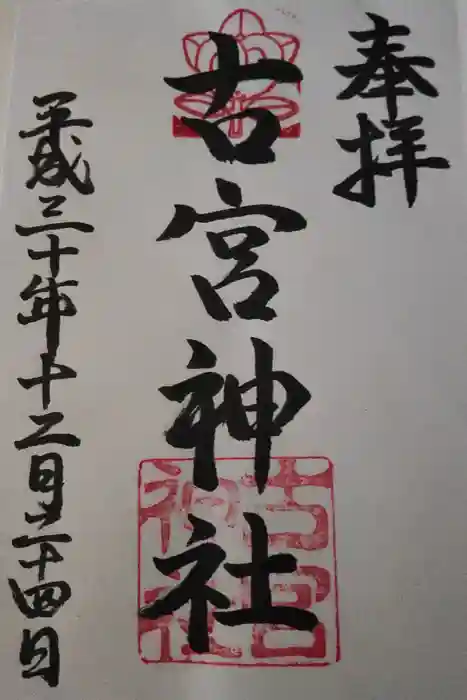 奉拝
古宮神社
平成三十年十二月二十四日
古宮神社